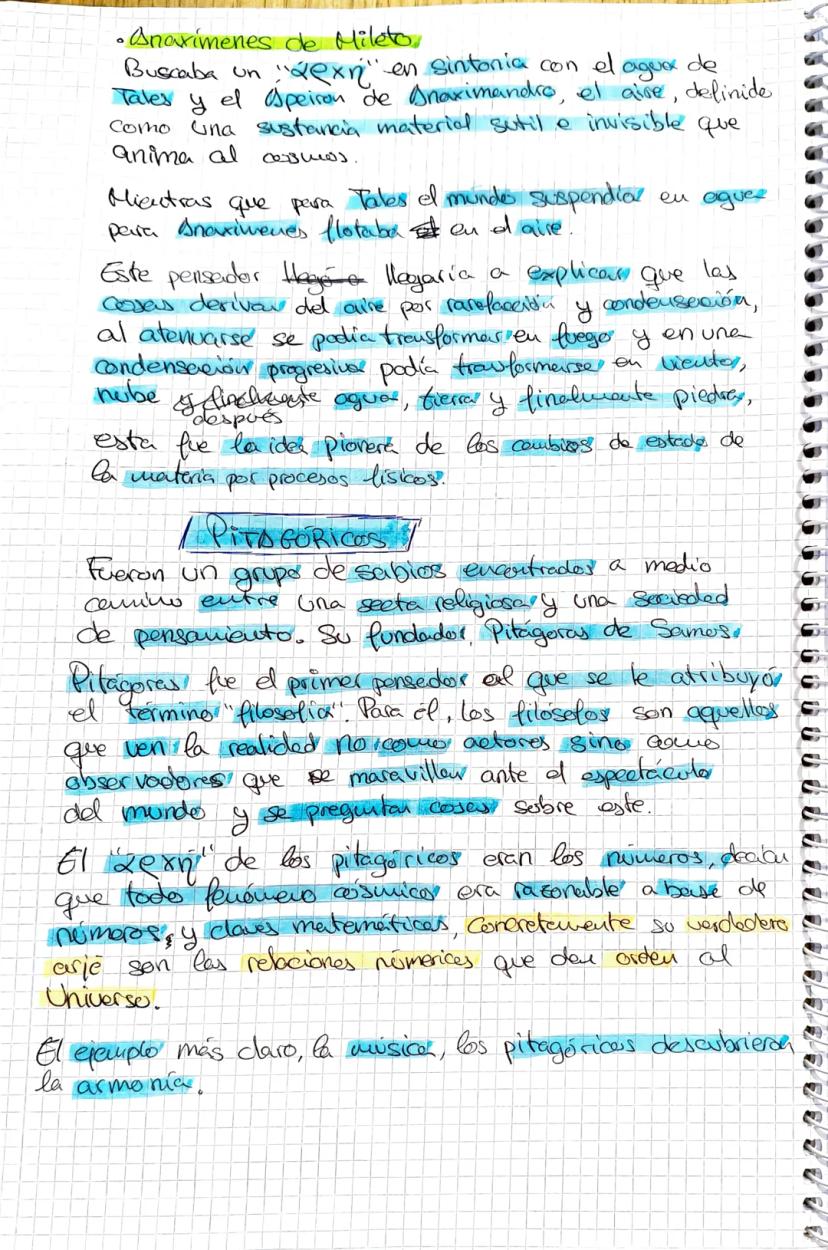 · Anaxímenes de Mileto
Buscaba un "αρχη" en sintonía con el agua de
Tales y el Ápeiron de Anaximandro, el aire, definido
como una sustancia material sutil e invisible que
anima al cosmos.
Mientras que para Tales el mundo suspendía en agua
para Anaxímenes flotaba en el aire.
Este pensador llegó a llegaría a explicar que las
cosas derivan del aire por rarefacción y condensación,
al atenuarse se podía transformar en fuego y en una
condensación progresiva podía transformarse en viento,
nube y finalmente agua, tierra y finalmente piedra,
después
esta fue la idea pionera de los cambios de estado de
la materia por procesos físicos.
PITAGÓRICOS
Fueron un grupo de sabios encontrados a medio
camino entre una secta religiosa y una sociedad
de pensamiento. Su fundador, Pitágoras de Samos.
Pitágoras fue el primer pensador al que se le atribuyó
el término "filosofía". Para él, los filósofos son aquellos
que ven la realidad no como actores sino como
observadores que se maravillan ante el espectáculo
del mundo y se preguntan cosas sobre este.
El "αρχη" de los pitagóricos eran los números, decían
que todo fenómeno cósmico era razonable a base de
números, y claves matemáticas, concretamente su verdadero
arjé son las relaciones númericas que dan orden al
Universo.
El ejemplo más claro, la música, los pitagóricos descubrieron
la armonía.